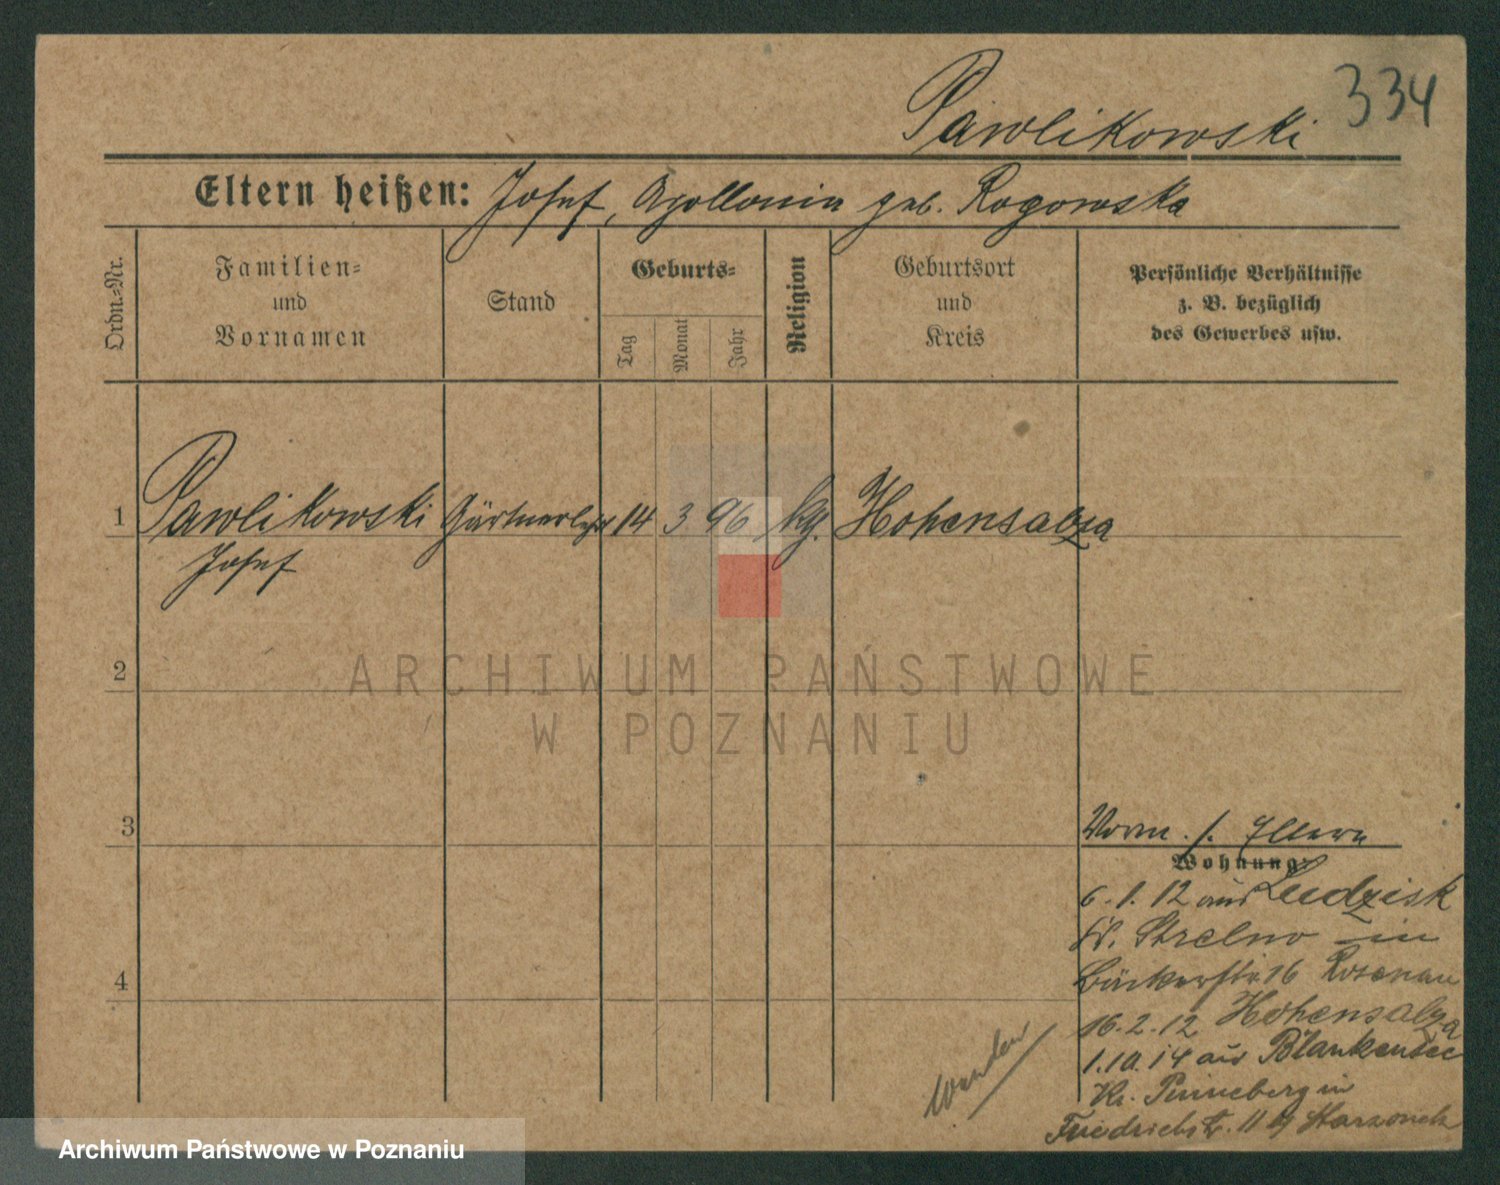 334
Pawlikowski
Eltern heißen: Josef, Apollonia geb. Rogowska
Ordn.-Nr.
Familien-
und
Vornamen
Stand
Geburts-
Tag
Monat
Jahr
Religion
Geburtsort
und
Kreis
Persönliche Verhältnisse
z. B. bezüglich
des Gewerbes usw.
1 Pawlikowski Gärtnerlehr 14 3 96 kg. Hohensalza
Josef
2
ARCHIWUM PAŃSTWOWE
W POZNANIU
3
Vorm. s. Eltern
Wohnung:
6.1.12 aus Ludzisk
Kr. Strelno in
Bäckerstr 16
4
16.2.12 Hohensalza
1.10.14 aus Blankensee
Kr. Pinneberg in
Friedrichstr. 11
Archiwum Państwowe w Poznaniu